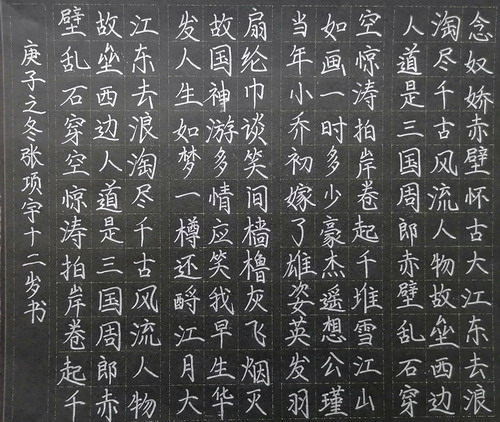 念奴娇赤壁怀古大江东去浪
淘尽千古风流人物故垒西边
人道是三国周郎赤壁乱石穿
空惊涛拍岸卷起千堆雪江山
如画一时多少豪杰遥想公瑾
当年小乔初嫁了雄姿英发羽
扇纶巾谈笑间樯橹灰飞烟灭
故国神游多情应笑我早生华
发人生如梦一樽还酹江月大
江东去浪淘尽千古风流人物
故垒西边人道是三国周郎赤
壁乱石穿空惊涛拍岸卷起千
庚子之冬张项宇十二岁书